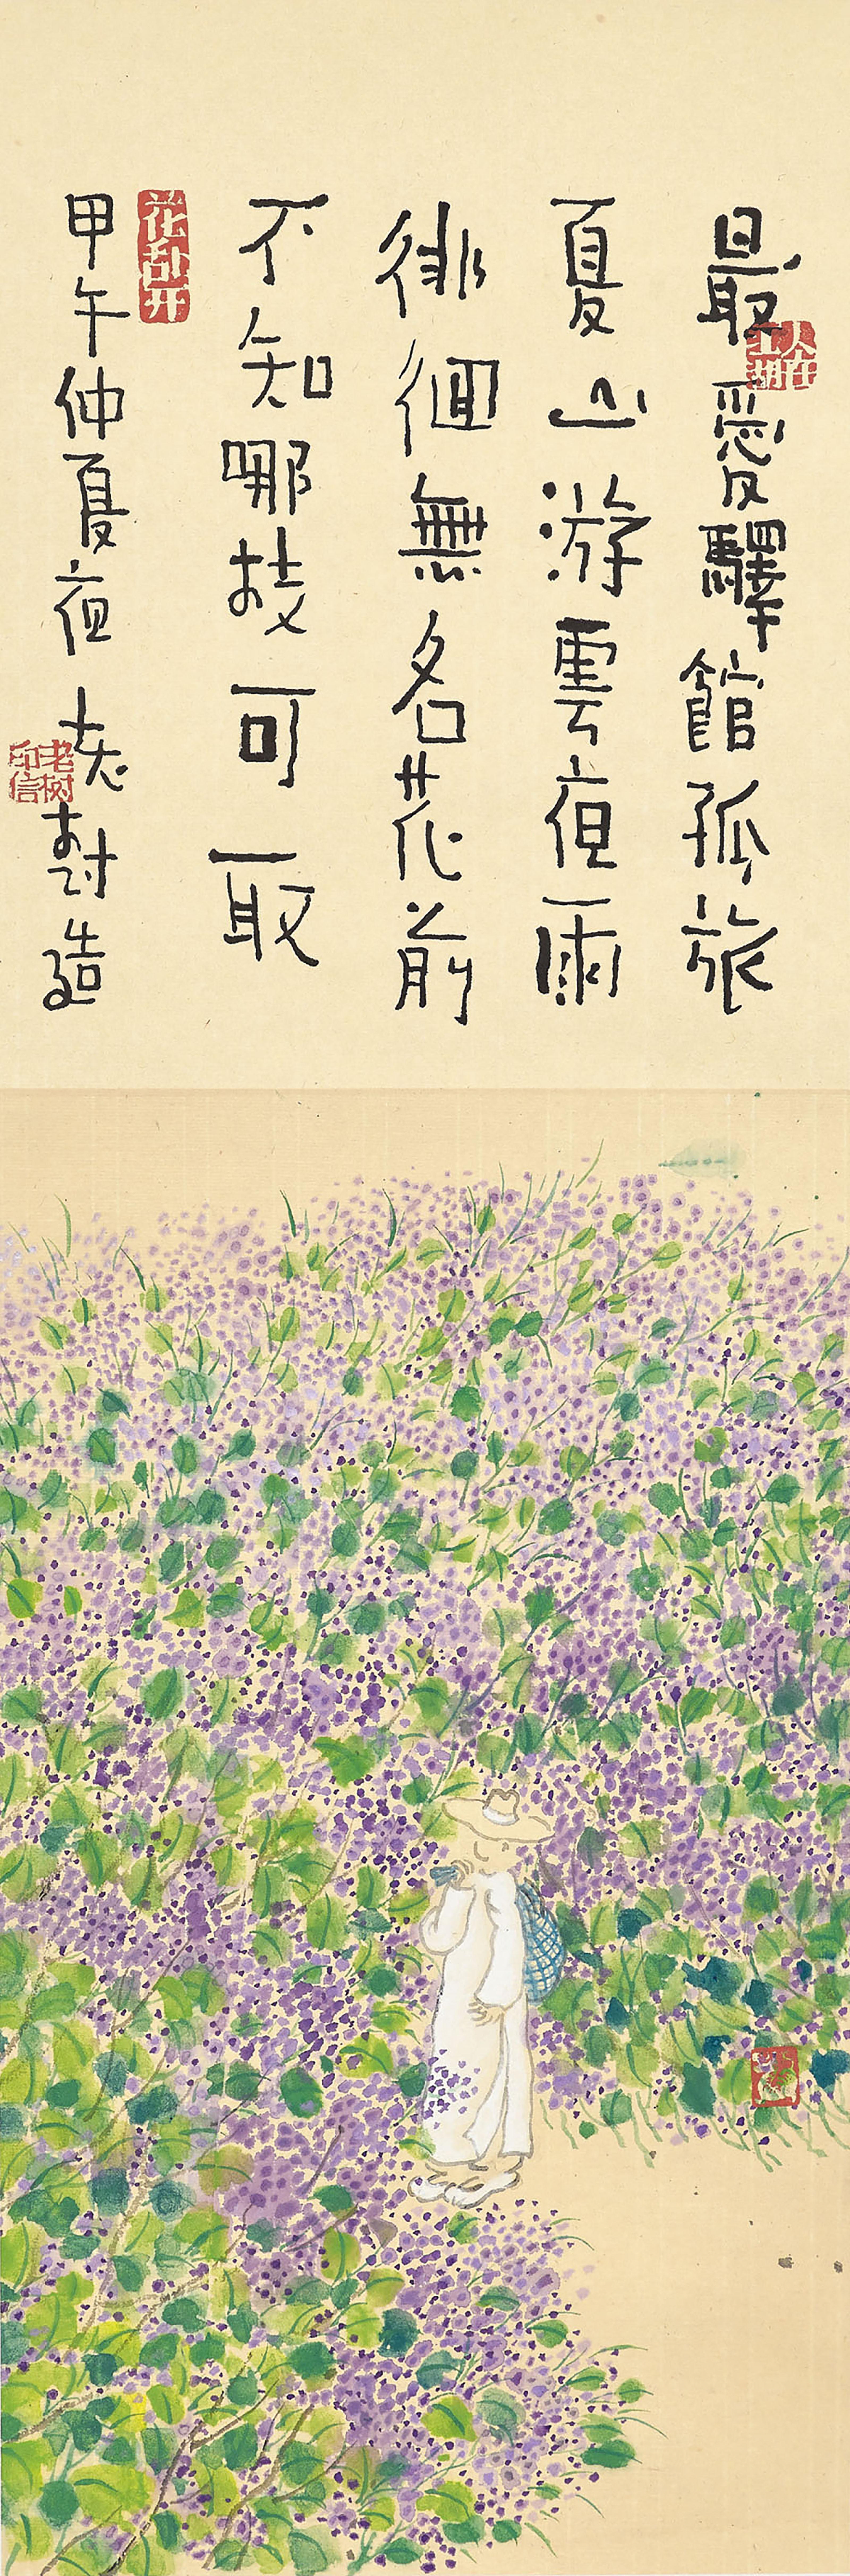 最愛驛館孤旅
夏山游雲夜雨
徘徊無名花前
不知哪枝可取
甲午仲夏夜 老樹造
花乱开
人在江湖
老树印信